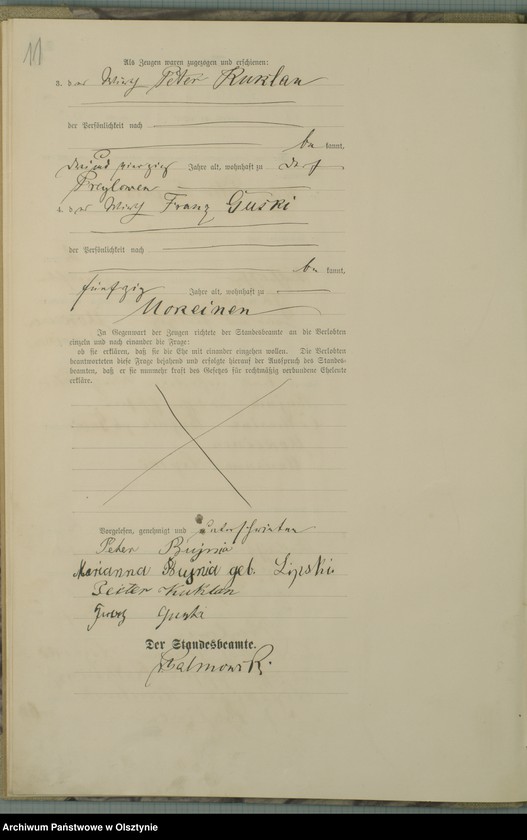 11
Als Zeugen waren zugezogen und erschienen:
3. der Wirth Peter Kuklan
der Persönlichkeit nach
be kannt,
drei und vierzig Jahre alt, wohnhaft zu Dorf
Preylowen
4. der Wirth Franz Guski
der Persönlichkeit nach
be kannt,
fünfzig Jahre alt, wohnhaft zu
Mokeinen
In Gegenwart der Zeugen richtete der Standesbeamte an die Verlobten
einzeln und nach einander die Frage:
ob sie erklären, daß sie die Ehe mit einander eingehen wollen. Die Verlobten
beantworteten diese Frage bejahend und erfolgte hierauf der Ausspruch des Standes-
beamten, daß er sie nunmehr kraft des Gesetzes für rechtmäßig verbundene Eheleute
erkläre.
Vorgelesen, genehmigt und unterschrieben
Peter Bujnia
Marianna Bujnia geb. Lipski
Peter Kuklan
Franz Guski
Der Standesbeamte.
Archiwum Państwowe w Olsztynie